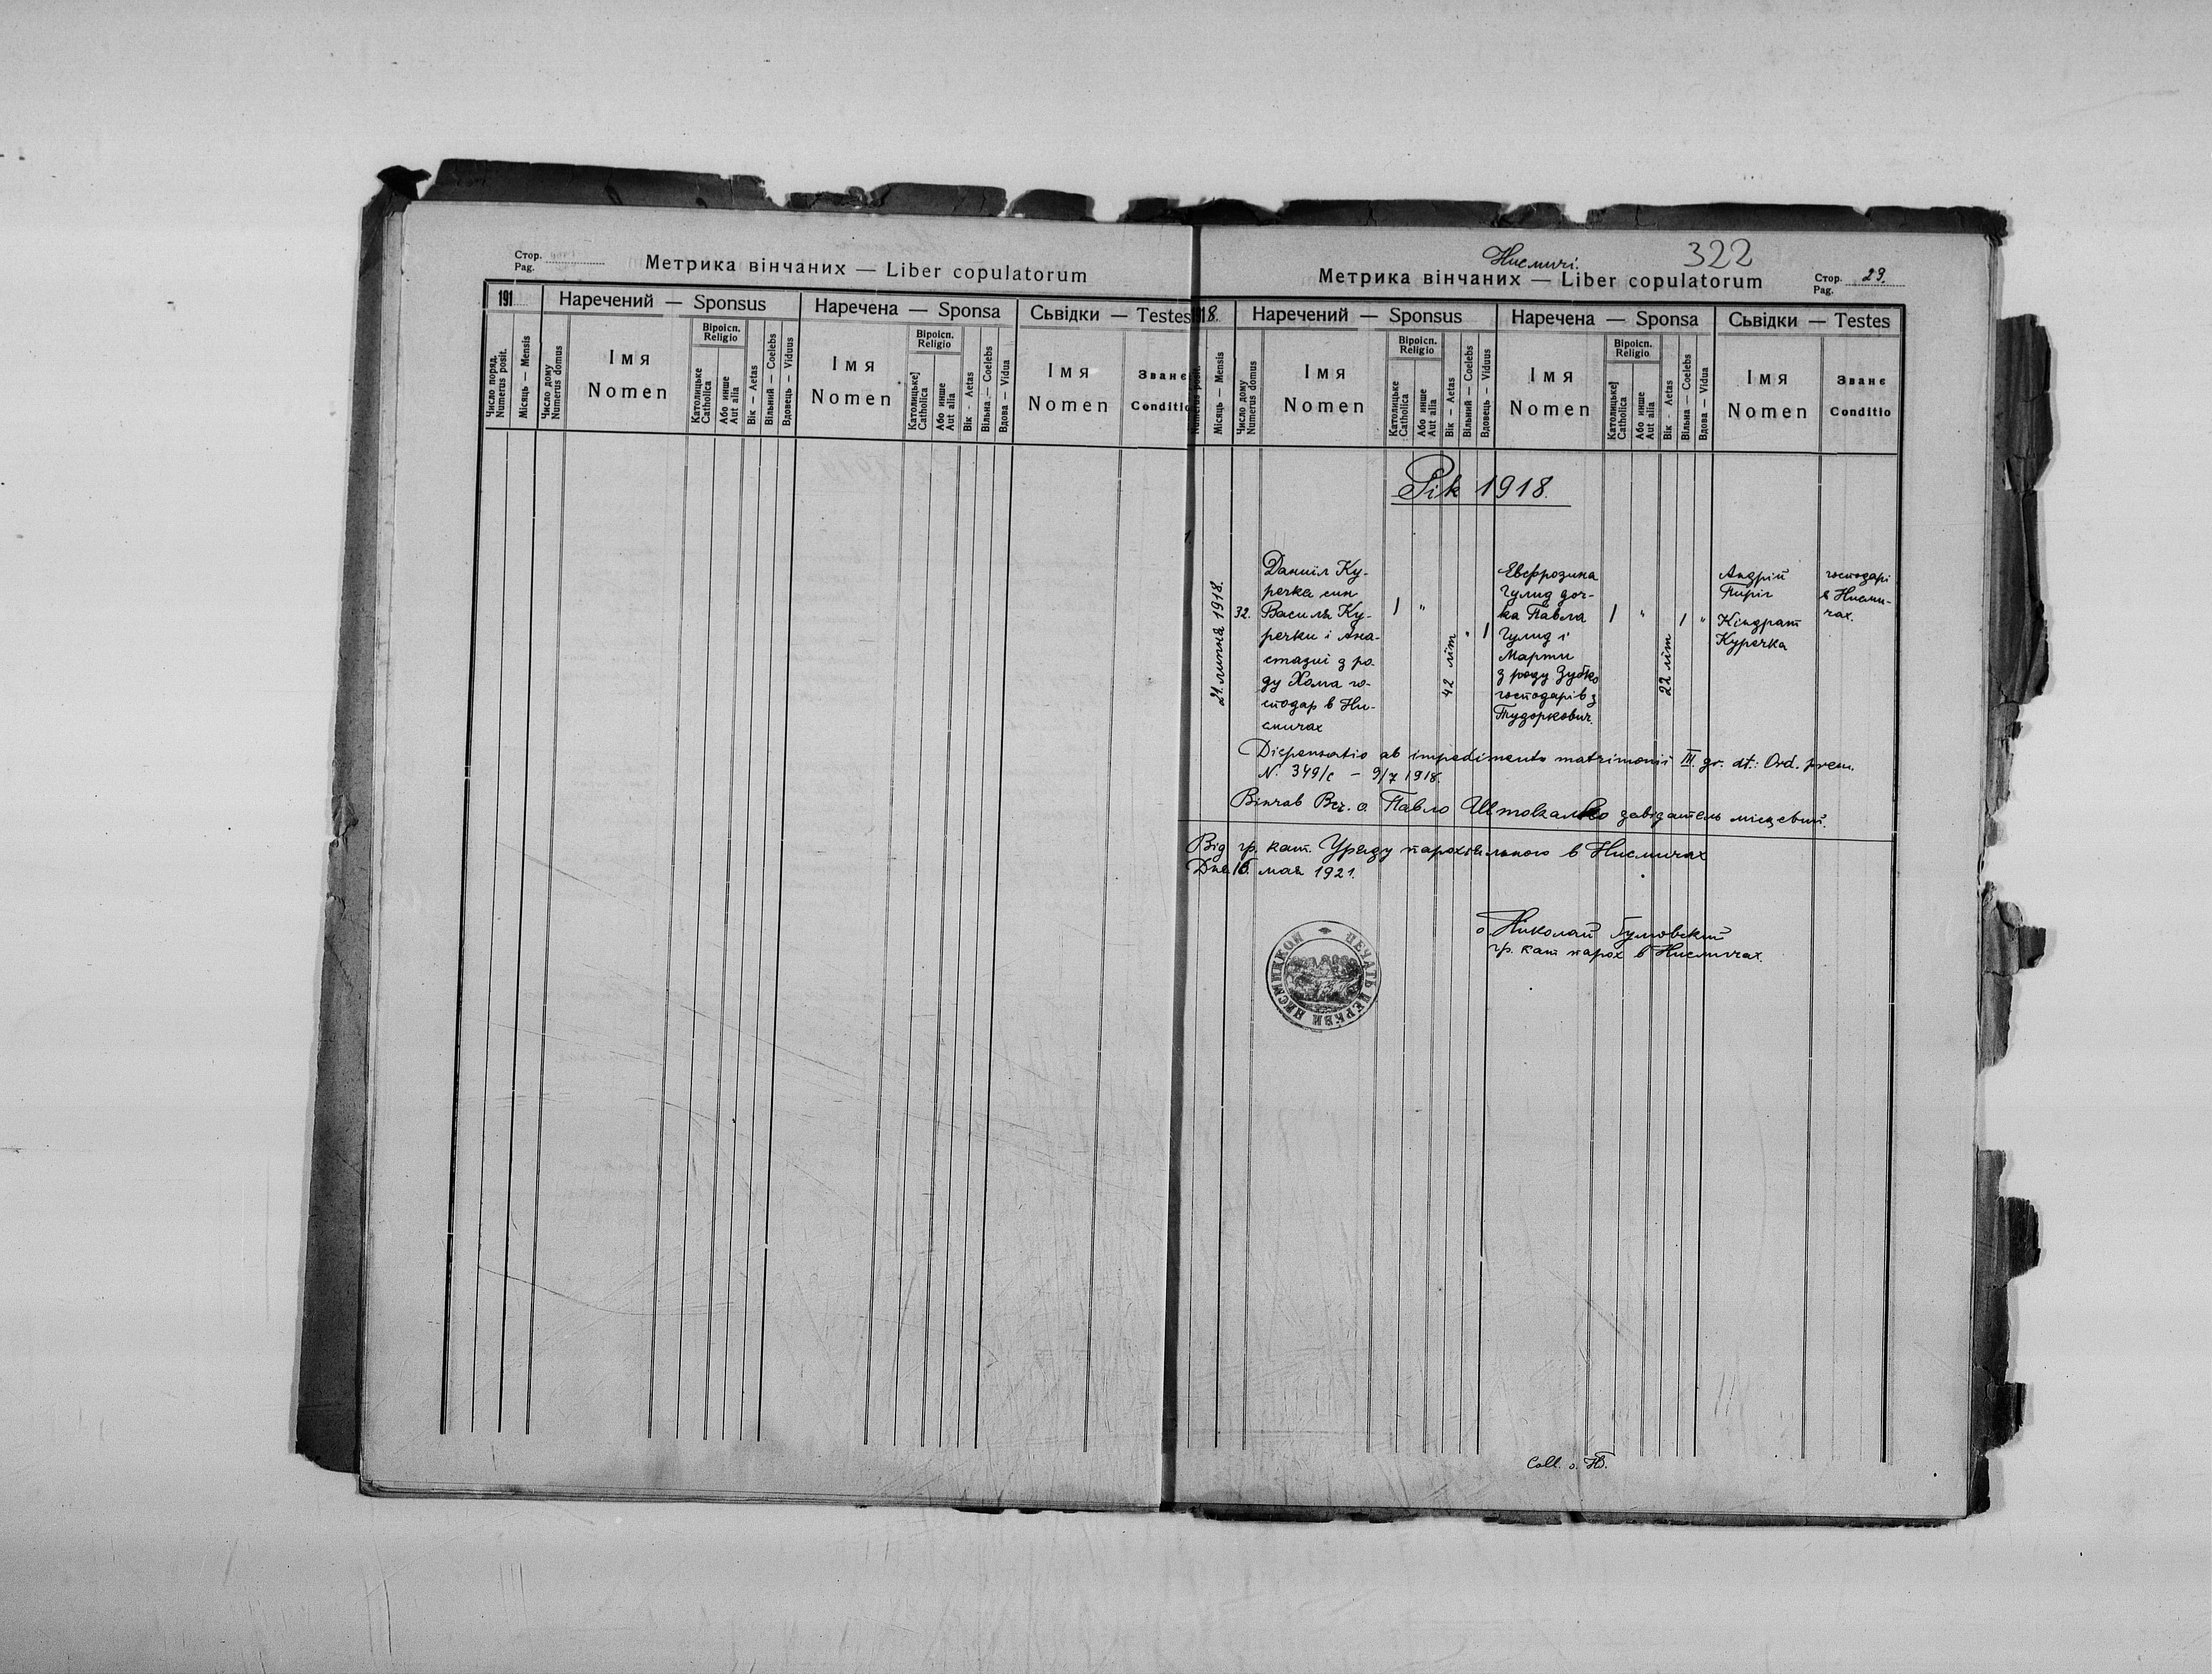 Стор.
Pag.
Метрика вінчаних — Liber copulatorum
191
Наречений — Sponsus
Наречена — Sponsa
Сьвідки — Testes
Число поряд.
Numerus posit.
Місяць — Mensis
Число дому
Numerus domus
Імя
Nomen
Віроісп.
Religio
Католицьке
Catholica
Або инше
Aut alia
Вік — Aetas
Вільний — Coelebs
Вдовець — Viduus
Імя
Nomen
Віроісп.
Religio
Католицьке]
Catholica
Або инше
Aut alia
Вік - Aetas
Вільна — Coelebs
Вдова — Vidua
Імя
Nomen
Званє
Conditio
Нисмичі.
322
Метрика вінчаних — Liber copulatorum
Стор.
Pag.
29.
18.
Наречений — Sponsus
Наречена — Sponsa
Сьвідки — Testes
Numerus posit.
Місяць — Mensis
Число дому
Numerus domus
Імя
Nomen
Віроісп.
Religio
Католицьке
Catholica
Або инше
Aut alia
Вік — Aetas
Вільний — Coelebs
Вдовець — Viduus
Імя
Nomen
Віроісп.
Religio
Католицьке]
Catholica
Або инше
Aut alia
Вік - Aetas
Вільна — Coelebs
Вдова — Vidua
Імя
Nomen
Званє
Conditio
Рік 1918.
1.
21. липня 1918.
32.
Даниїл Ку-
речка син
Василя Ку-
речки і Ана-
стазиї з ро-
ду Хома го-
сподар в Ни-
смичах
/ "
42 літ
" /
Евфрозина
Гулид доч-
ка Павла
Гулид і
Марти
з роду Зубко
господарів з
Тудоркович.
/ "
22 літ
/ "
Андрій
Пиріг
Кіндрат
Куречка
господарі
в Нисми-
чах.
Dispensatio ab impedimento matrimonii III. gr. dt.: Ord. prem.
N. 349/c - 9/7 1918.
Вінчав Вч. о. Павло Штокалко завідатель місцевий.
Від гр. кат. Уряду парохіяльного в Нисмичах
Дня 16. мая 1921.
о. Николай Гумовский
гр. кат парох в Нисмичах.
ПЕЧАТЬ ЦЕРКВИ НИСМИЦКОЙ
Coll. о. НГ.